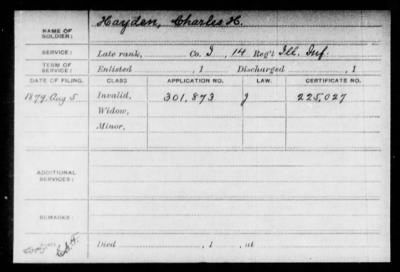 Hayden, Charles H.
NAME OF SOLDIER:
SERVICE: Late rank, Co. I, 14 Reg't Ill. Inf.
TERM OF SERVICE: Enlisted , 1 Discharged , 1
DATE OF FILING. CLASS APPLICATION NO. LAW. CERTIFICATE NO.
1879, Aug 5 Invalid, 301,873 J 225,027
Widow,
Minor,
ADDITIONAL SERVICES:
REMARKS:
Died , 1 , at